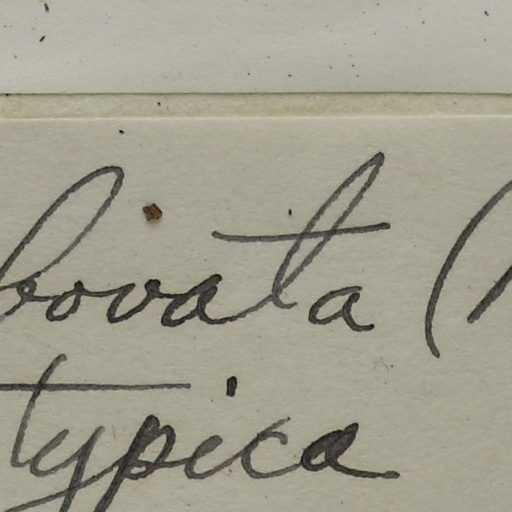 bovata (
typica